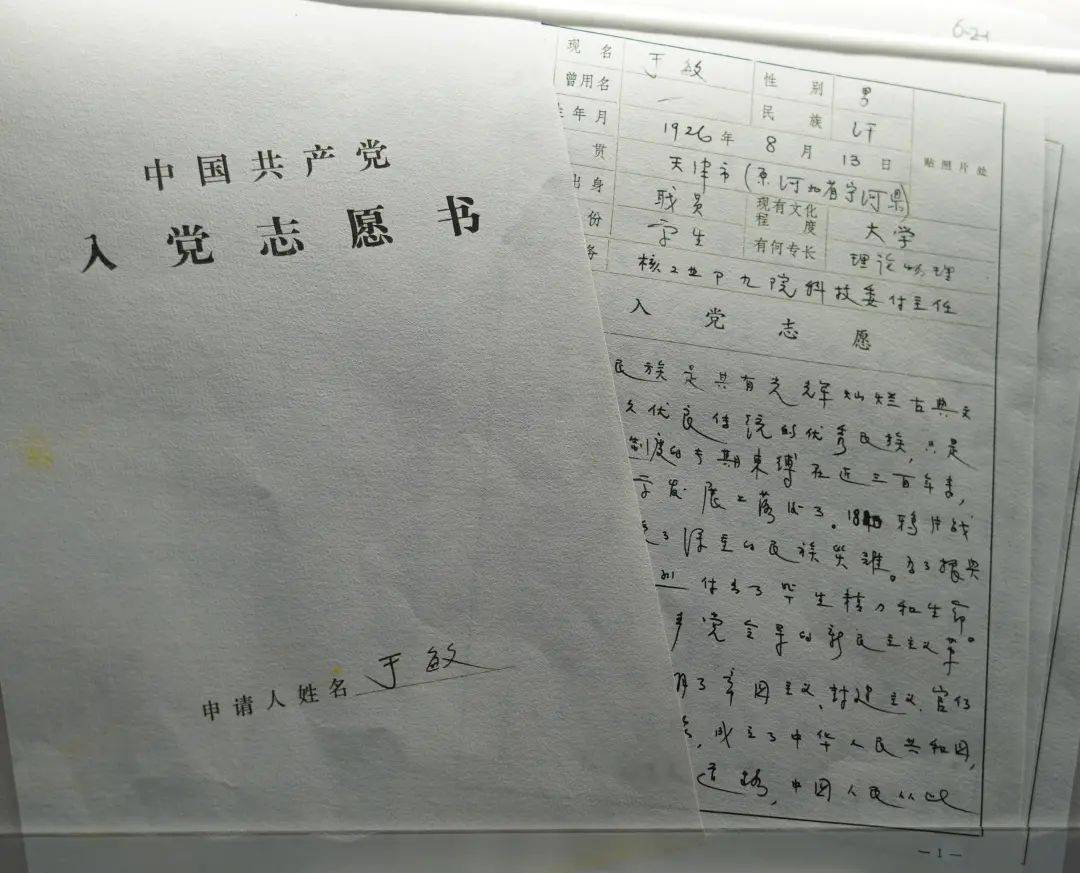 中国共产党
入党志愿书
申请人姓名 于敏
6-21
现名 于敏 性别 男
曾用名 一 民族 汉
年月 1926年8月13日 贴照片处
贯 天津市(原河北省宁河县)
出身 职员 现有文化程度 大学
份 学生 有何专长 理论物理
务 核工业部九院科技委付主任
入党志愿
民族是具有光辉灿烂古典文
久优良传统的优秀民族,只是
制度的专期束缚在近二三百年来,
学发展上落后了。1840鸦片战
了深重的民族灾难。为了振兴
付出了毕生精力和生命。
产党领导的新民主主义革
了帝国主义、封建主义、官僚
成立了中华人民共和国,
道路,中国人民从此
—1—